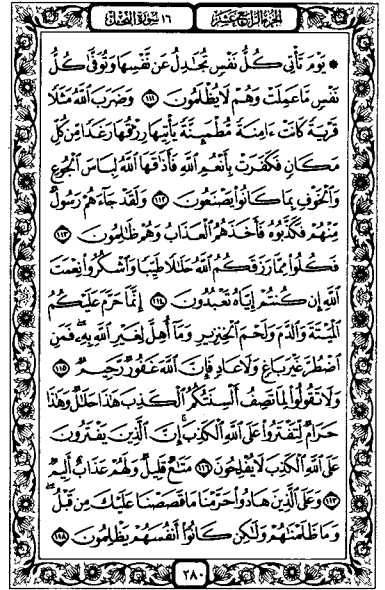 الجزء الرابع عشر
١٦ سورة النحل
۞ يَوْمَ تَأْتِى كُلُّ نَفْسٍ تُجَٰدِلُ عَن نَّفْسِهَا وَتُوَفَّىٰ كُلُّ
نَفْسٍ مَّا عَمِلَتْ وَهُمْ لَا يُظْلَمُونَ ﴿١١١﴾ وَضَرَبَ ٱللَّهُ مَثَلًا
قَرْيَةً كَانَتْ ءَامِنَةً مُّطْمَئِنَّةً يَأْتِيهَا رِزْقُهَا رَغَدًا مِّن كُلِّ
مَكَانٍ فَكَفَرَتْ بِأَنْعُمِ ٱللَّهِ فَأَذَٰقَهَا ٱللَّهُ لِبَاسَ ٱلْجُوعِ
وَٱلْخَوْفِ بِمَا كَانُوا۟ يَصْنَعُونَ ﴿١١٢﴾ وَلَقَدْ جَآءَهُمْ رَسُولٌ
مِّنْهُمْ فَكَذَّبُوهُ فَأَخَذَهُمُ ٱلْعَذَابُ وَهُمْ ظَٰلِمُونَ ﴿١١٣﴾
فَكُلُوا۟ مِمَّا رَزَقَكُمُ ٱللَّهُ حَلَٰلًا طَيِّبًا وَٱشْكُرُوا۟ نِعْمَتَ
ٱللَّهِ إِن كُنتُمْ إِيَّاهُ تَعْبُدُونَ ﴿١١٤﴾ إِنَّمَا حَرَّمَ عَلَيْكُمُ
ٱلْمَيْتَةَ وَٱلدَّمَ وَلَحْمَ ٱلْخِنزِيرِ وَمَآ أُهِلَّ لِغَيْرِ ٱللَّهِ بِهِۦ ۖ فَمَنِ
ٱضْطُرَّ غَيْرَ بَاغٍ وَلَا عَادٍ فَإِنَّ ٱللَّهَ غَفُورٌ رَّحِيمٌ ﴿١١٥﴾
وَلَا تَقُولُوا۟ لِمَا تَصِفُ أَلْسِنَتُكُمُ ٱلْكَذِبَ هَٰذَا حَلَٰلٌ وَهَٰذَا
حَرَامٌ لِّتَفْتَرُوا۟ عَلَى ٱللَّهِ ٱلْكَذِبَ ۚ إِنَّ ٱلَّذِينَ يَفْتَرُونَ
عَلَى ٱللَّهِ ٱلْكَذِبَ لَا يُفْلِحُونَ ﴿١١٦﴾ مَتَٰعٌ قَلِيلٌ وَلَهُمْ عَذَابٌ أَلِيمٌ
﴿١١٧﴾ وَعَلَى ٱلَّذِينَ هَادُوا۟ حَرَّمْنَا مَا قَصَصْنَا عَلَيْكَ مِن قَبْلُ ۖ
وَمَا ظَلَمْنَٰهُمْ وَلَٰكِن كَانُوٓا۟ أَنفُسَهُمْ يَظْلِمُونَ ﴿١١٨﴾
٢٨٠